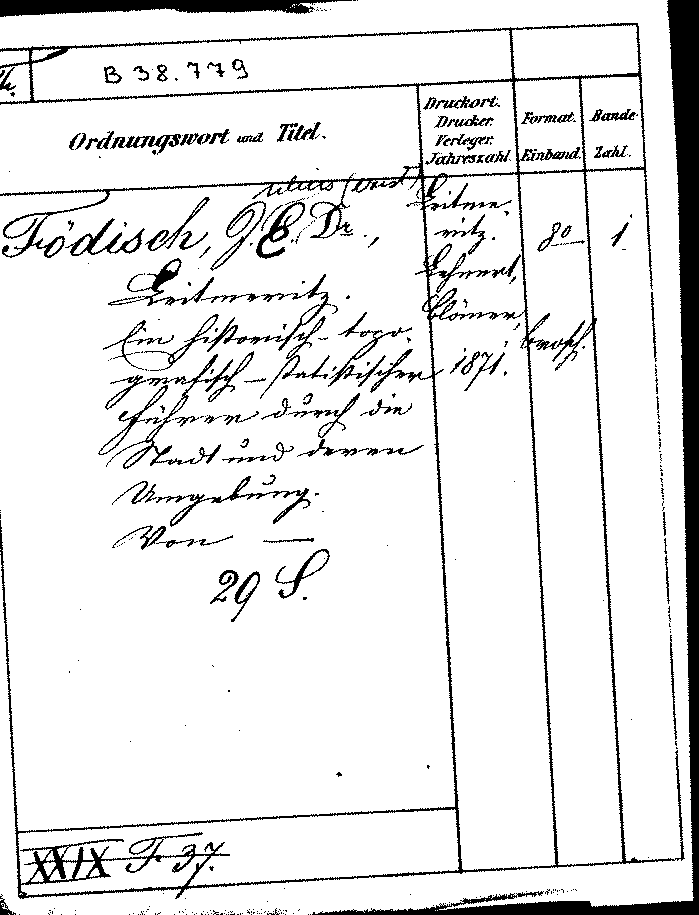 B 38.779
Ordnungswort und Titel.
Druckort.
Drucker.
Verleger.
Jahreszahl.
Format.
Einband.
Bände-
Zahl.
Födisch, J. E. Dr.,
Leitmeritz.
Ein historisch-topo-
grafisch-statistischer
Führer durch die
Stadt und deren
Umgebung.
Von —
29 S.
Leitme-
ritz.
Lehnert,
Blömer,
1871.
8°
brosch.
1
XXIX F. 37.